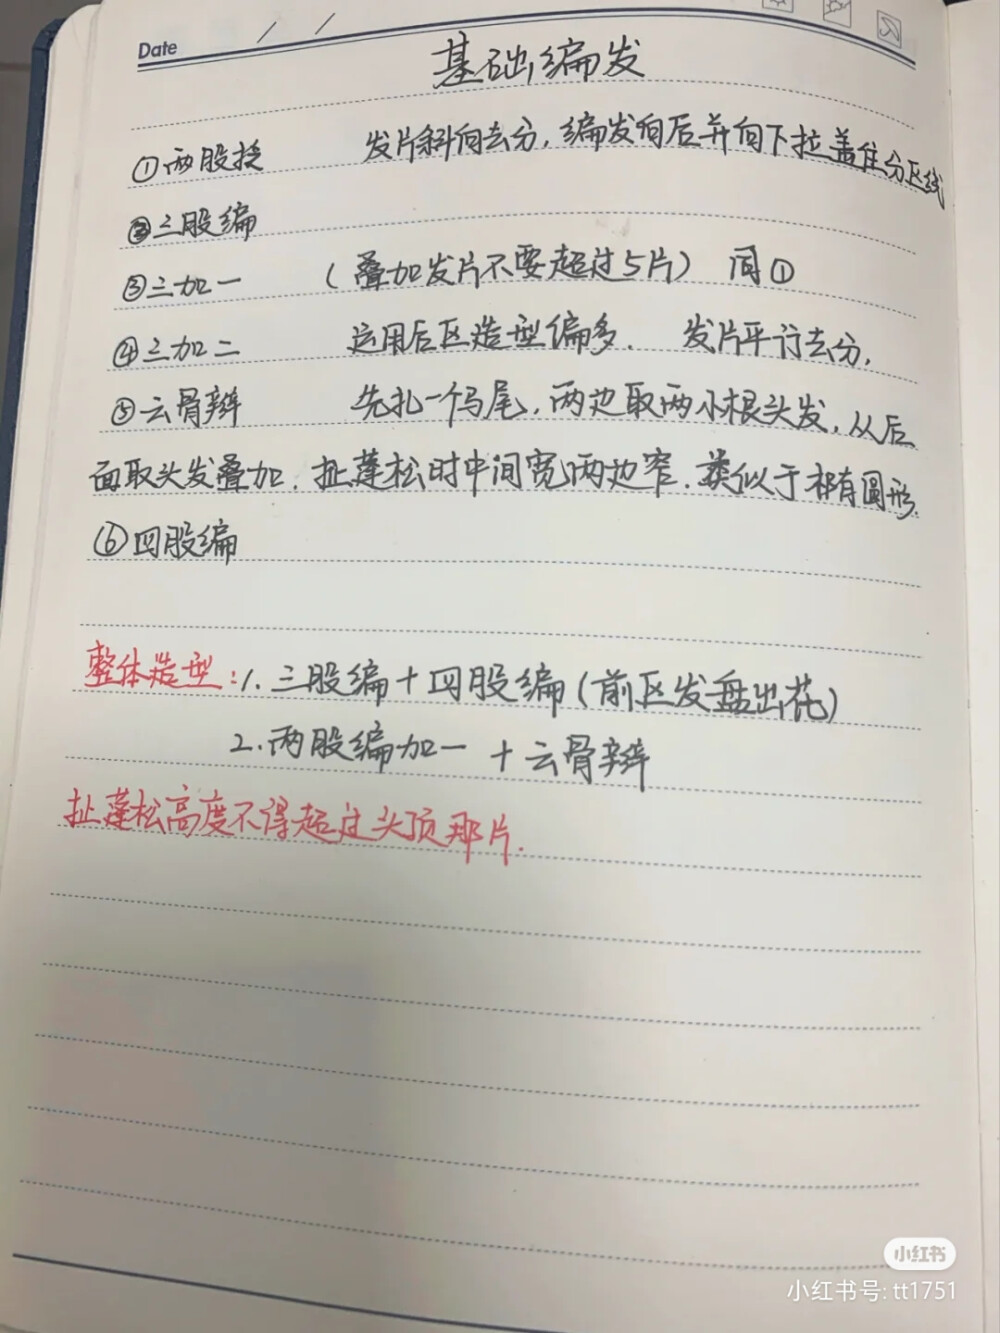 Date / /
基础编发
①两股拧 发片斜向去分,编发向后并向下拉盖住分区线
②三股编
③三加一 (叠加发片不要超过5片) 同①
④三加二 运用后区造型偏多. 发片平行去分,
⑤云骨辫 先扎一个马尾,两边取两小根头发,从后
面取头发叠加.扯蓬松时中间宽两边窄.类似于椭圆形.
⑥四股编
整体造型:1.三股编+四股编(前区发盘出花)
2.两股编加一 +云骨辫
扯蓬松高度不得超过头顶那片.
小红书
小红书号:tt1751